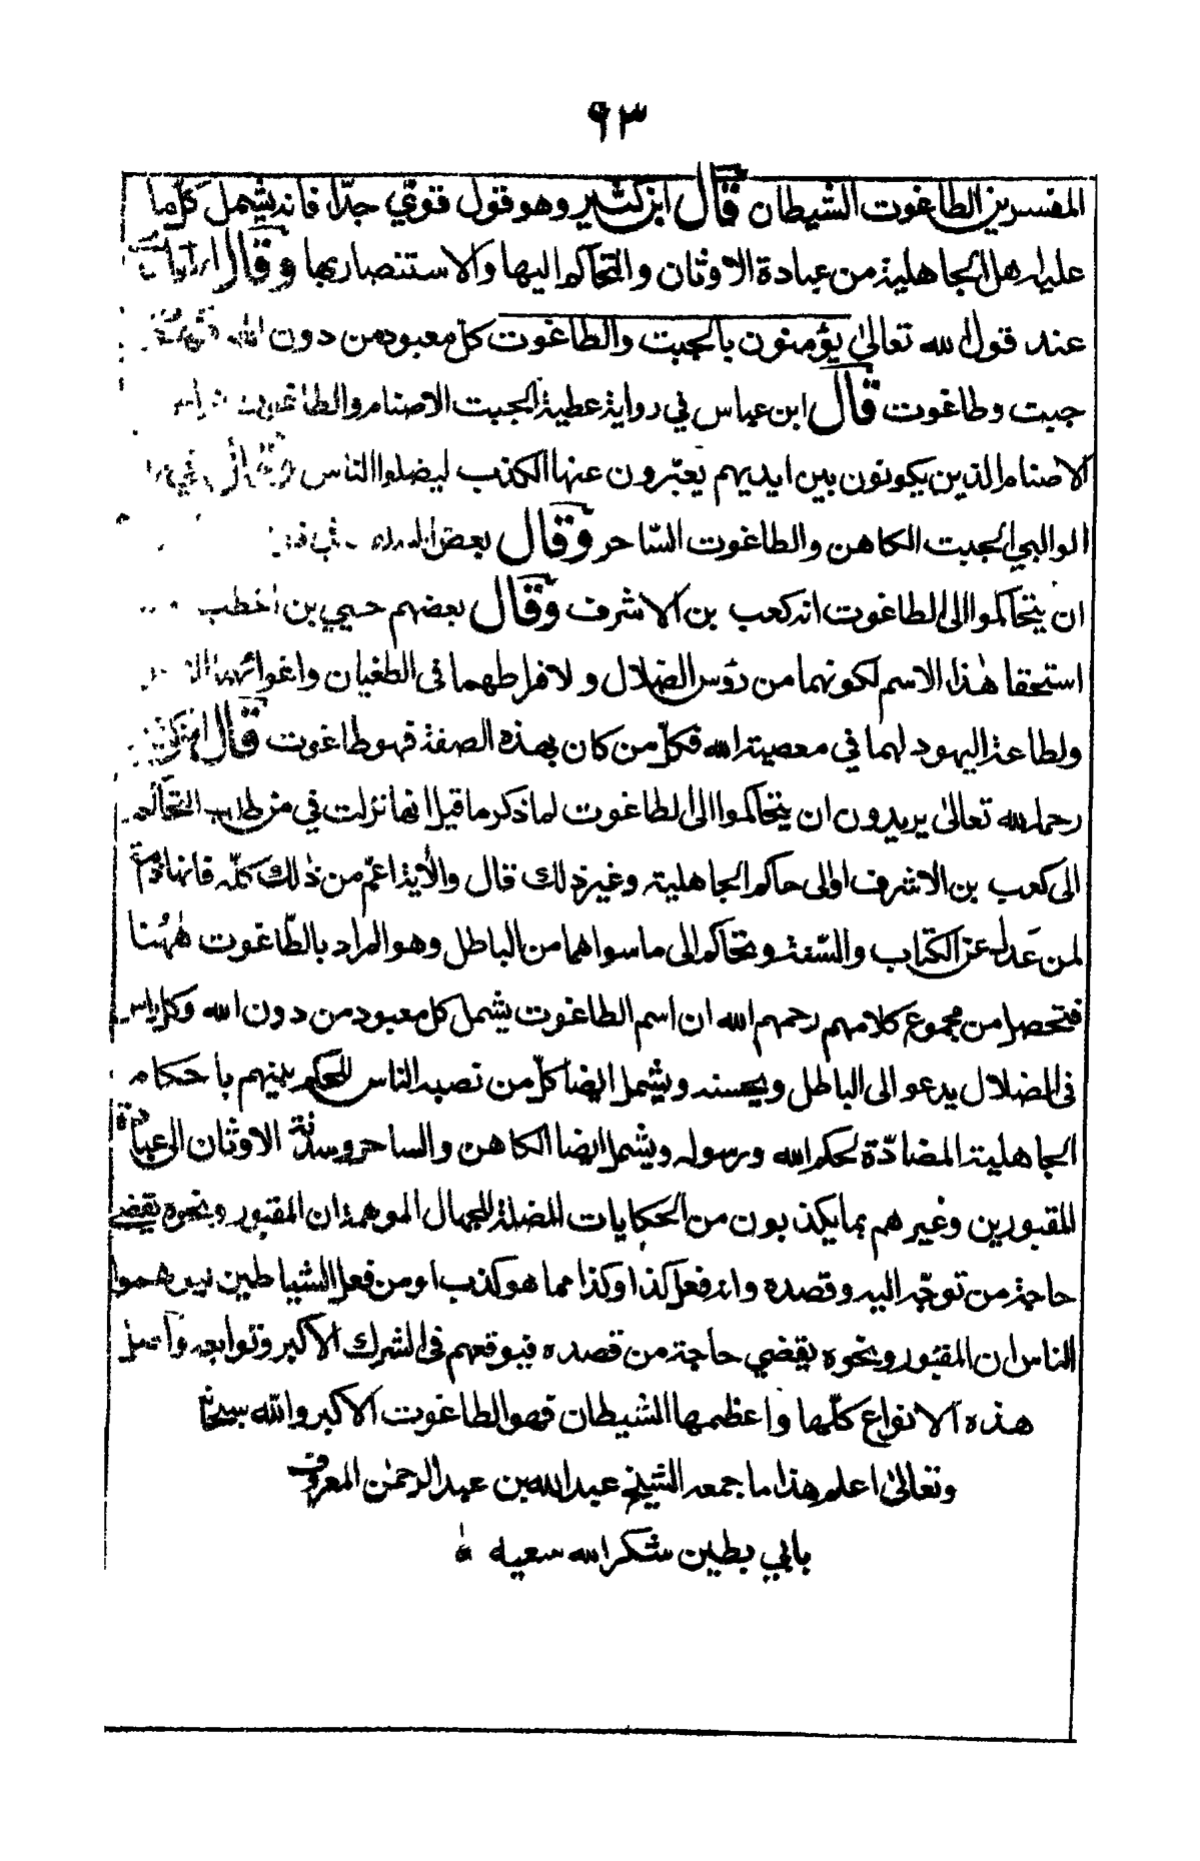 ٩٣
المفسرين الطاغوت الشيطان قال ابن كثير وهو قول قويّ جدّا فانه يشمل كلّ ما
عليه اهل الجاهلية من عبادة الاوثان والتحاكم اليها والاستنصار بها وقال
عند قول الله تعالىٰ يؤمنون بالجبت والطاغوت كل معبود من دون الله
جبت وطاغوت قال ابن عباس في رواية عطية الجبت الاصنام والطاغوت
الاصنام الذين يكونون بين ايديهم يعبّرون عنها الكذب ليضلوا الناس
الوالبي الجبت الكاهن والطاغوت السّاحر وقال بعض
ان يتحاكموا الى الطاغوت انه كعب بن الاشرف وقال بعضهم حيي بن اخطب
استحقا هٰذا الاسم لكونهما من رؤس الضلال ولافراطهما فى الطغيان واغوائهما
ولطاعة اليهود لهما في معصية الله فكلّ من كان بهذه الصفة فهو طاغوت قال ابن كثير
رحمه الله تعالىٰ يريدون ان يتحاكموا الى الطاغوت لما ذكر ما قيل انها نزلت في من طلب التحاكم
الى كعب بن الاشرف او الى حاكم الجاهلية وغير ذلك قال والأية اعمّ من ذٰلك كلّه فانها ذامة
لمن عَدل عن الكتاب والسّنة وتحاكم الى ما سواهما من الباطل وهو المراد بالطّاغوت هٰهُنا
فتحصل من مجموع كلامهم رحمهم الله ان اسم الطاغوت يشمل كل معبود من دون الله وكل راس
فى الضلال يدعو الى الباطل ويحسنه ويشمل ايضا كلّ من نصبه الناس للحكم بينهم باحكام
الجاهلية المضادّة لحكم الله ورسوله ويشمل ايضا الكاهن والساحر وسدنة الاوثان الى عبادة
المقبورين وغيرهم بما يكذبون من الحكايات المضلة للجهال الموهمة ان المقبور ونحوه يقضي
حاجة من توجّه اليه وقصده وانه فعل كذا وكذا مما هو كذب او من فعل الشياطين ليوهموا
الناس ان المقبور ونحوه يقضي حاجة من قصده فيوقعهم فى الشرك الاكبر وتوابعه واصل
هذه الانواع كلّها واعظمها الشيطان فهو الطاغوت الاكبر والله سبحانه
وتعالىٰ اعلم هذا ما جمعه الشيخ عبد الله بن عبد الرحمٰن المعروف
بابي بطين شكر الله سعيه